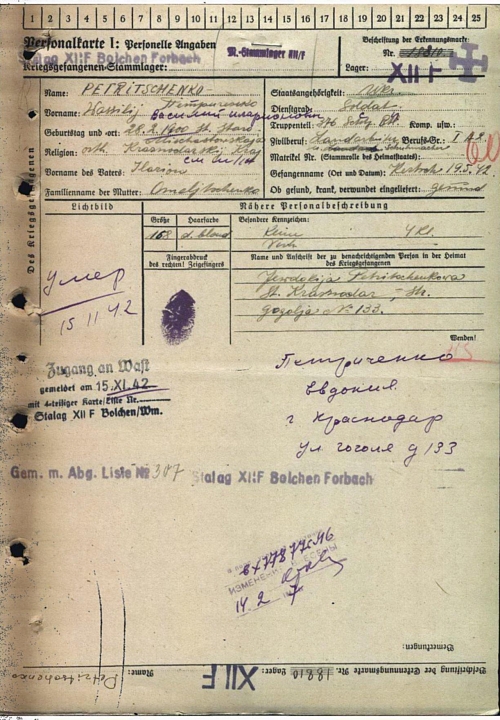 1 2 3 4 5 6 7 8 9 10 11 12 13 14 15 16 17 18 19 20 21 22 23 24 25
Personalkarte I: Personelle Angaben
Stalag XII F Bolchen Forbach
Kriegsgefangenen-Stammlager:
M.-Stammlager XII/F
Beschriftung der Erkennungsmarke
Nr. 18810
Lager: XII F
Des Kriegsgefangenen
Name: PETRITSCHENKO
Петриченко
Vorname: Wassilij Василий Иларионович
Geburtstag und -ort: 28.2.1900 St. Staro
Religion: orth. Krasnodarskij Kraj
Vorname des Vaters: Ilarion
Familienname der Mutter: Omeljtschenko
Staatsangehörigkeit: Ukr.
Dienstgrad: Soldat
Truppenteil: 276 Komp. usw.:
Zivilberuf: Berufs-Gr.: I
Matrikel Nr. (Stammrolle des Heimatstaates):
Gefangennahme (Ort und Datum): Kertsch 19.5.42
Ob gesund, krank, verwundet eingeliefert: gesund
Lichtbild
Nähere Personalbeschreibung
Größe Haarfarbe Besondere Kennzeichen:
168 d. blond Keine 4 Kl.
Fingerabdruck
des rechten! Zeigefingers
Name und Anschrift der zu benachrichtigenden Person in der Heimat
des Kriegsgefangenen
Jewdokija Petritschenkowa
St. Krasnodar, Str.
Gogolja № 133.
Wenden!
умер
15 11 42
Zugang an Wast
gemeldet am 15.XI.42
mit 4-teiliger Karte/Liste Nr.
Stalag XII F Bolchen/Wm.
Петриченко
Евдокия
г Краснодар
ул Гоголя д 133
Gem. m. Abg. Liste № 307 Stalag XII F Bolchen Forbach
14.2
Bemerkungen:
Beschriftung der Erkennungsmarke Nr. 18810 Lager: XII F
Name: Petritschenko